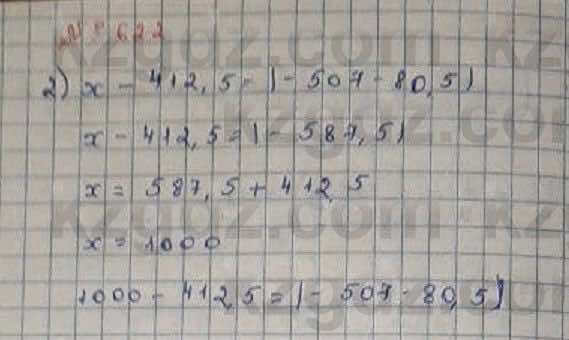 № 622
2) x - 412,5 = |- 507 - 80,5|
x - 412,5 = |- 587,5|
x = 587,5 + 412,5
x = 1000
1000 - 412,5 = |- 507 - 80,5|
kzgdz.com